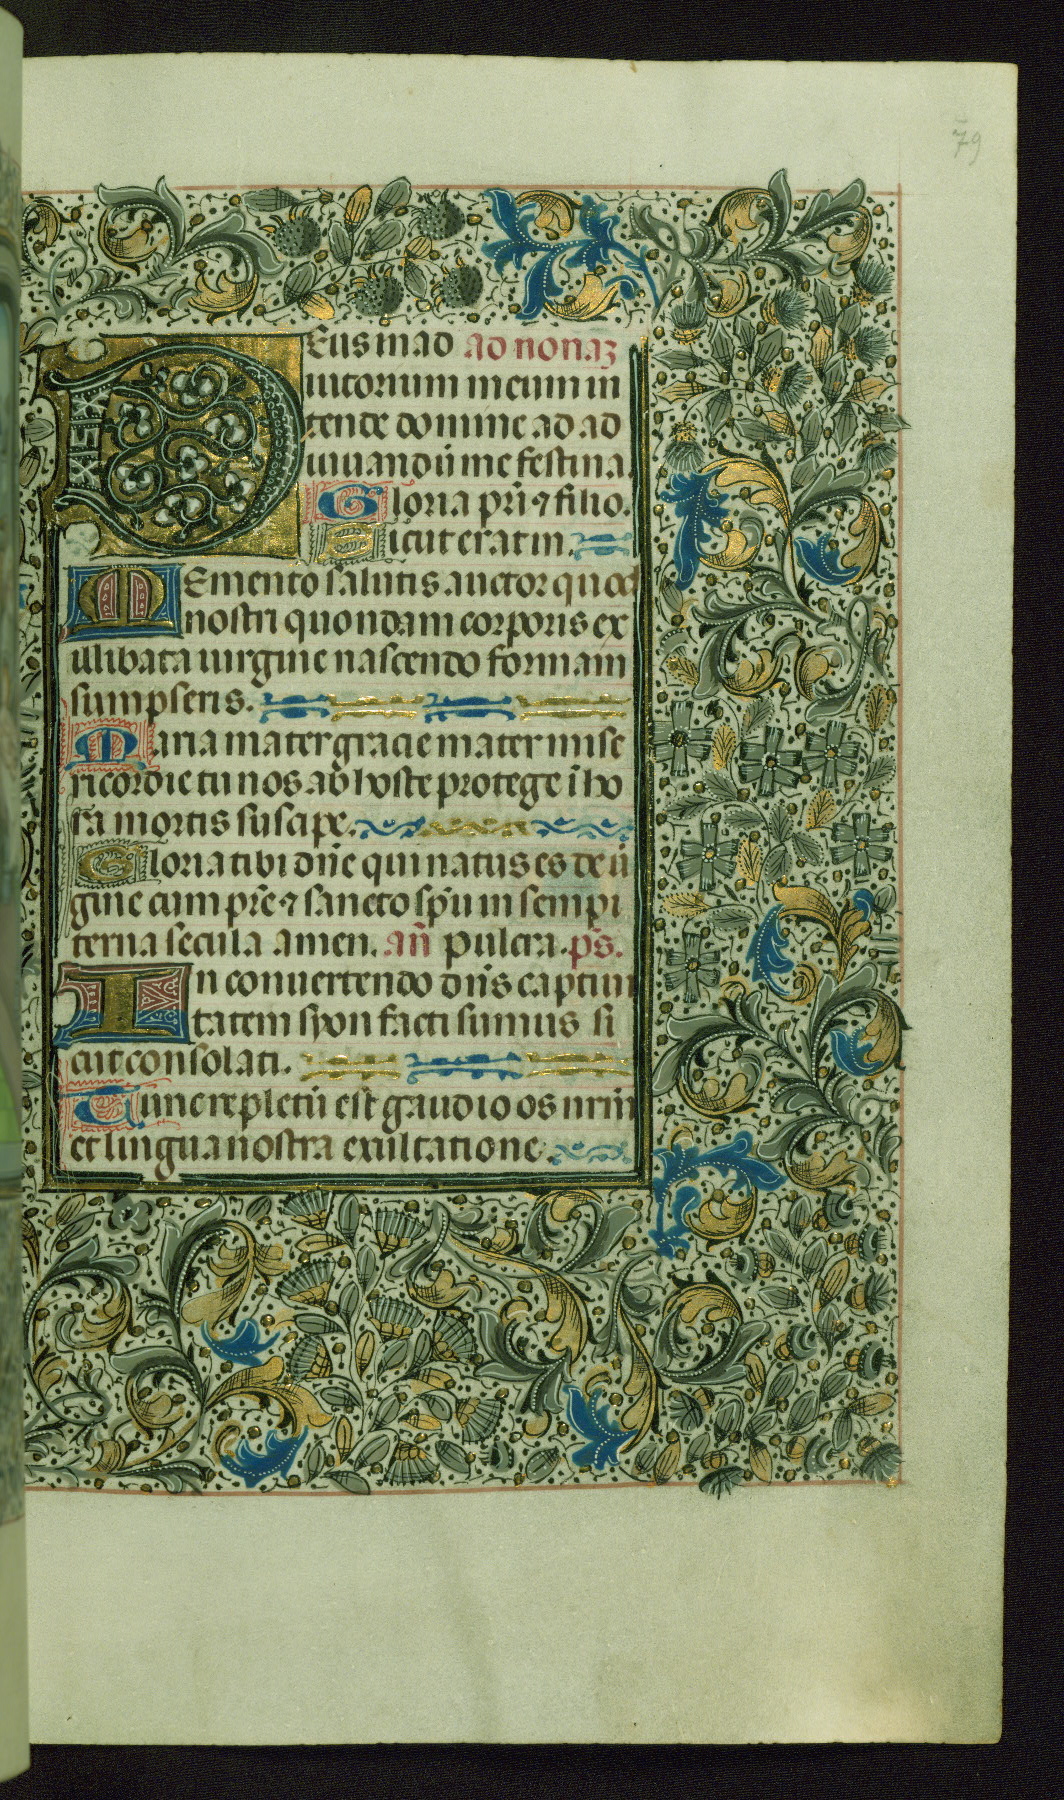 79
Deus in ad ad nonaz
iutorium meum in
tende domine ad ad
iuuandū me festina.
Gloria pr̄i ⁊ filio.
Sicut erat in.
Memento salutis auctor quod
nostri quondam corporis ex
illibata uirgine nascendo formam
sumpseris.
Maria mater gracie mater mise
ricordie tu nos ab hoste protege ī ho
ra mortis suscipe.
Gloria tibi dn̄e qui natus es de ū
gine cum pr̄e ⁊ sancto sp̄u in sempi
terna secula amen. an̄ Pulcra. ps̄.
In conuertendo dn̄s captiui
tatem syon facti sumus si
cut consolati.
Tunc repletū est gaudio os nr̄m
et lingua nostra exultatione.